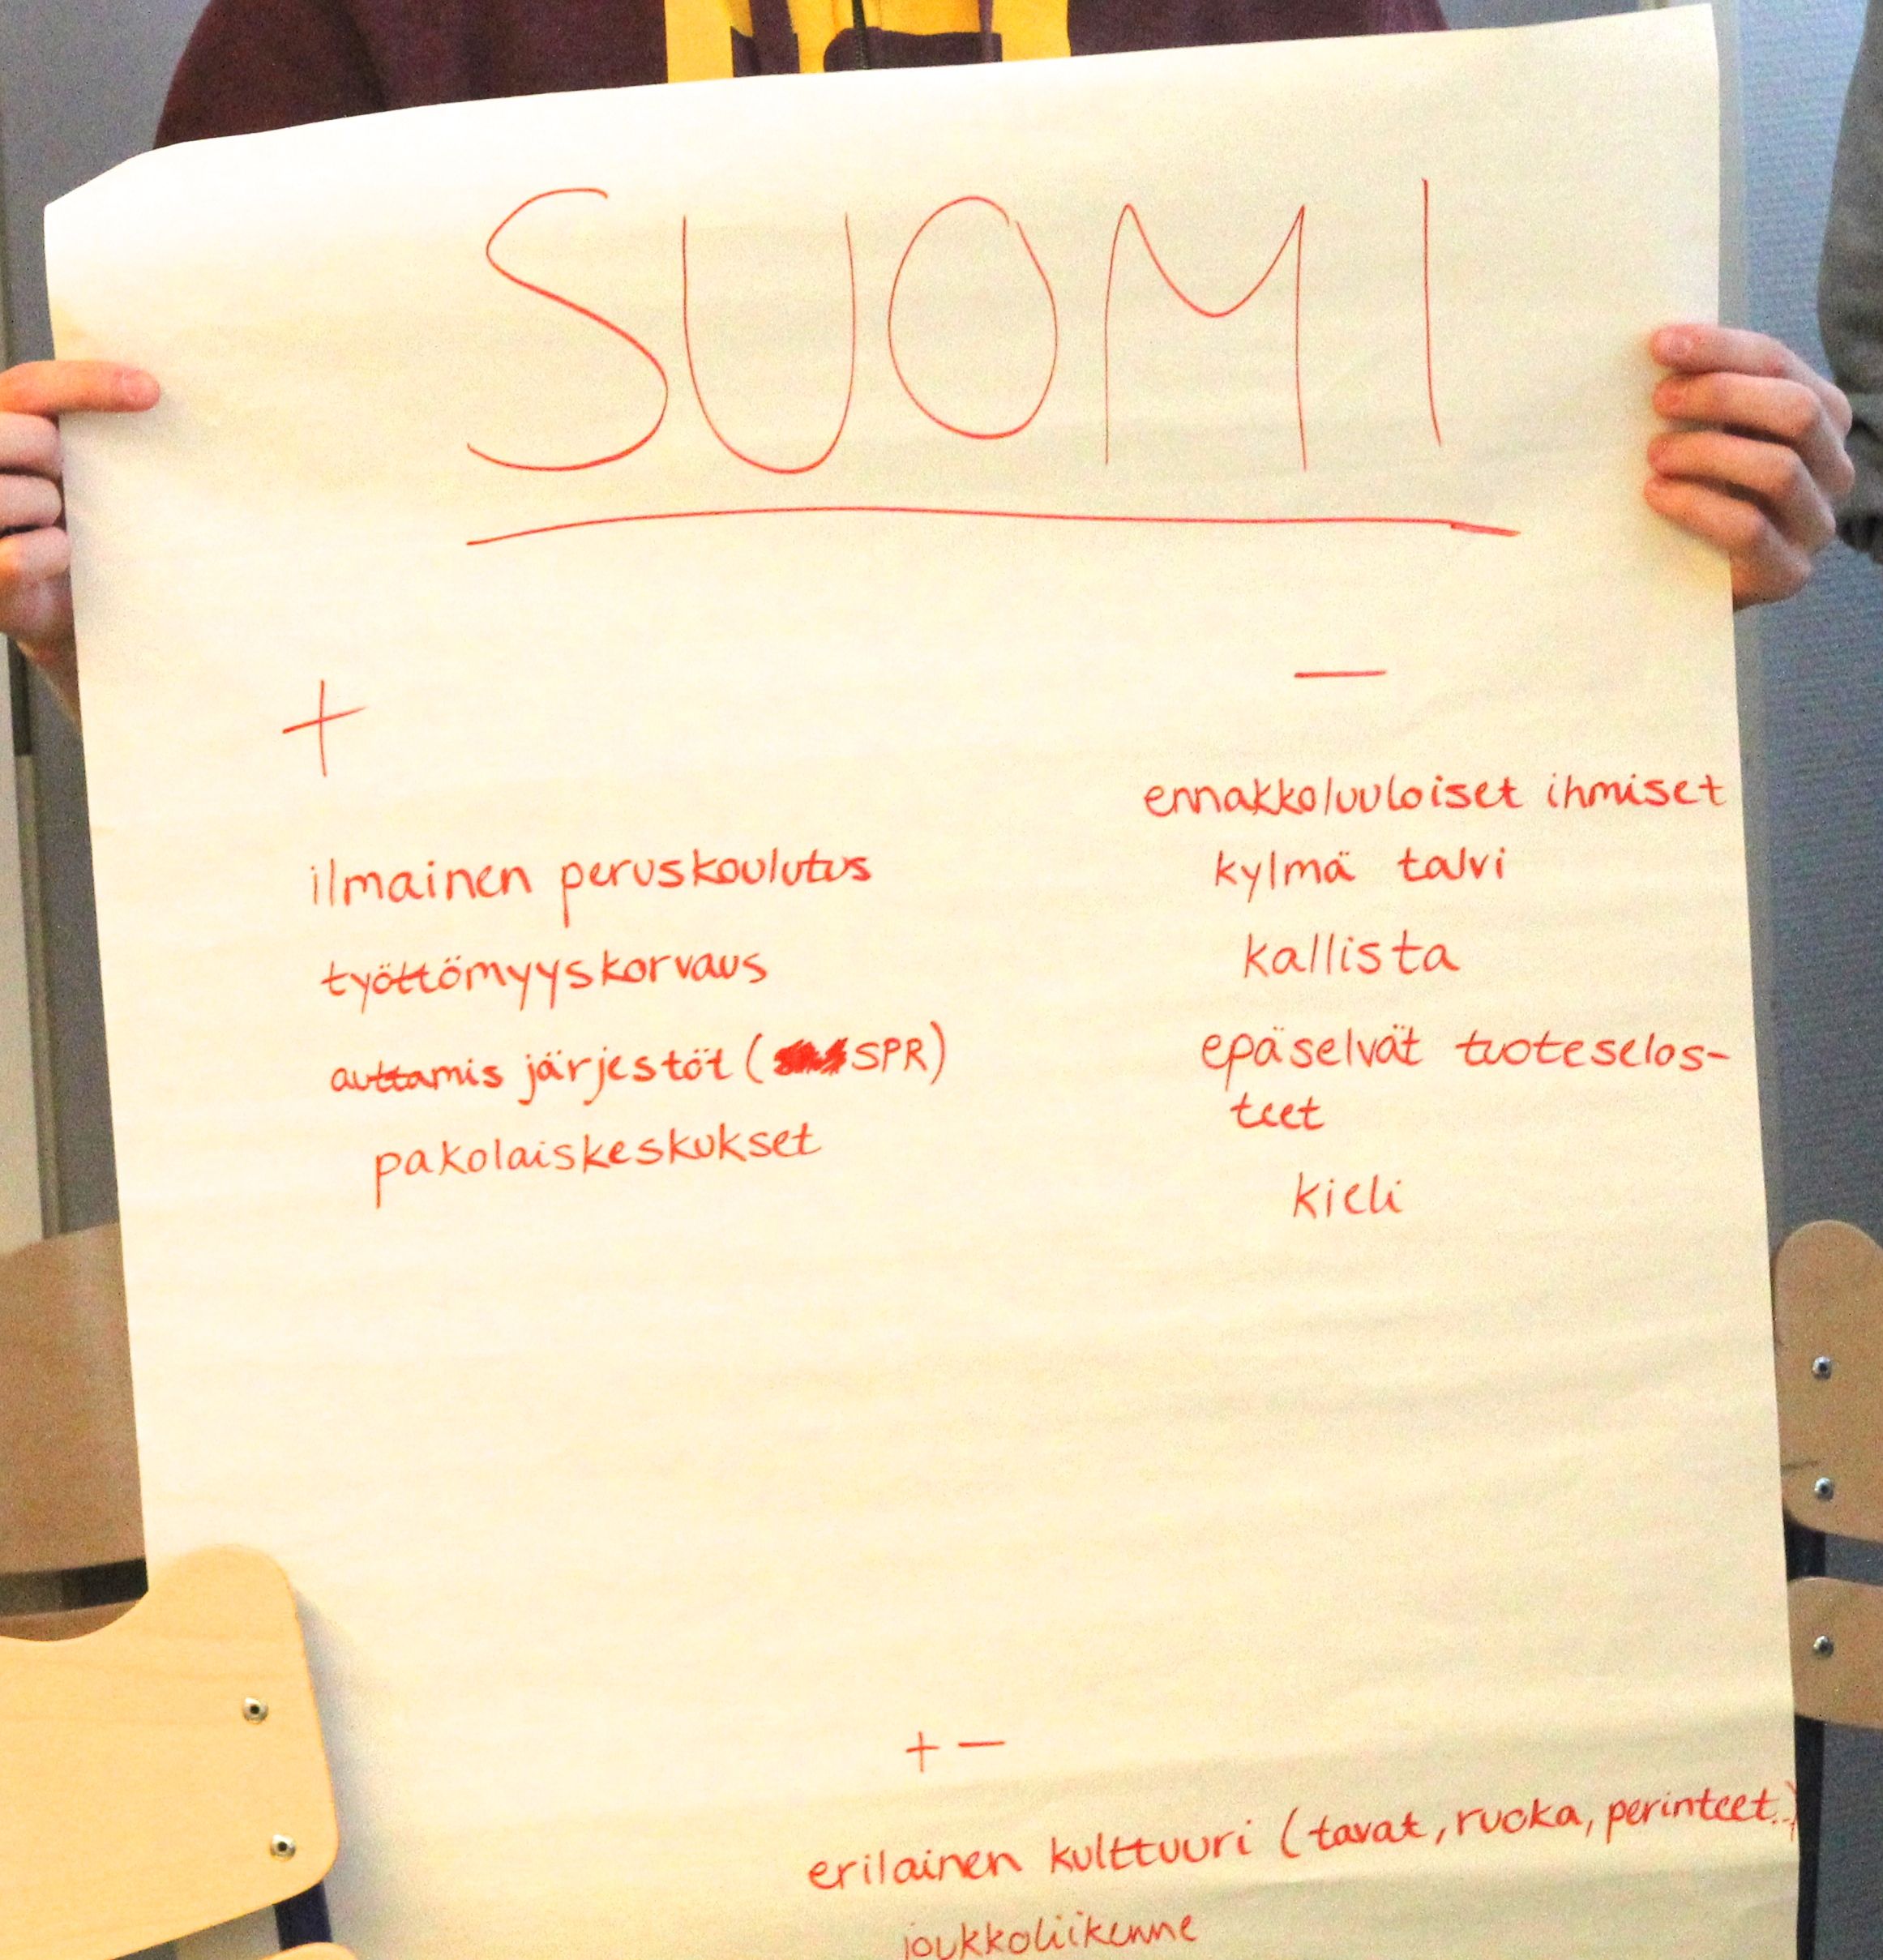 SUOMI
+
ilmainen peruskoulutus
työttömyyskorvaus
auttamis järjestöt (SPR)
pakolaiskeskukset
—
ennakkoluuloiset ihmiset
kylmä talvi
kallista
epäselvät tuoteselos-
teet
kieli
+ —
erilainen kulttuuri (tavat, ruoka, perinteet..)
joukkoliikenne